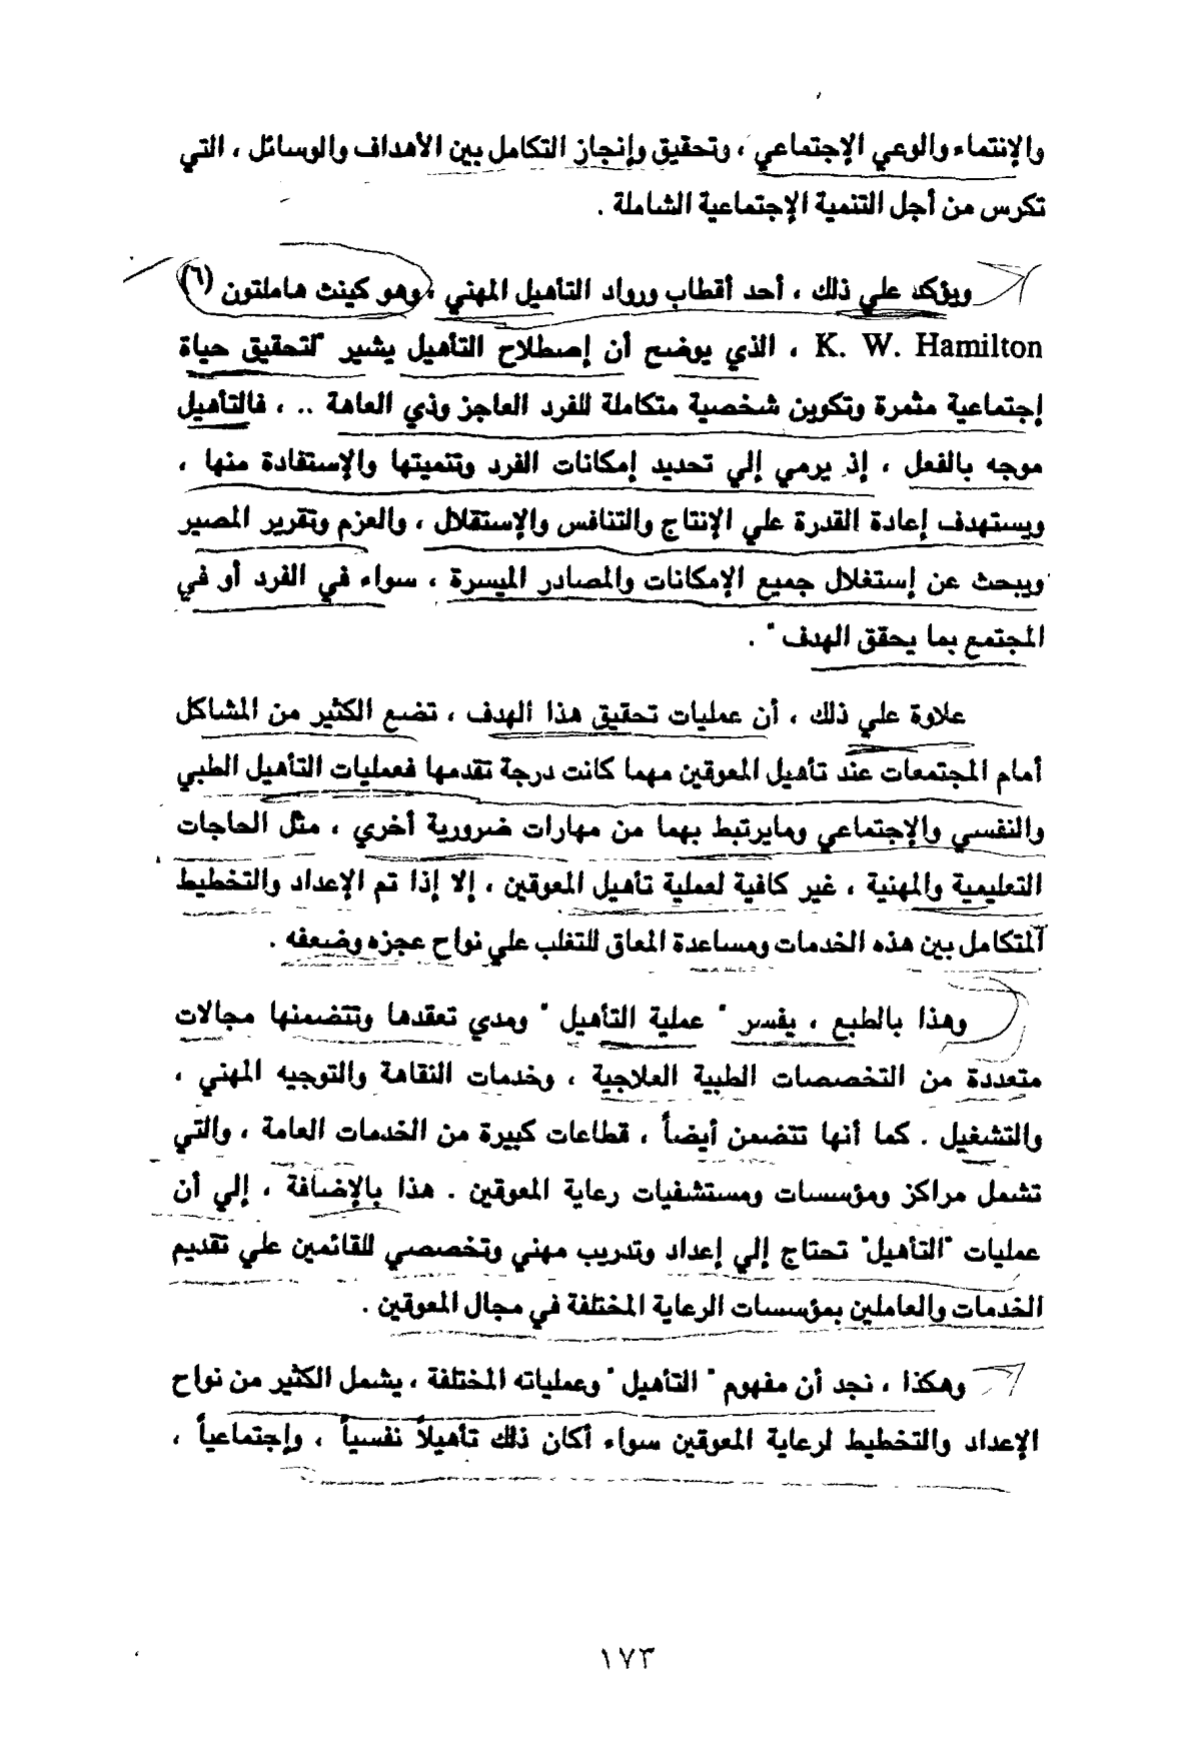 والإنتماء والوعي الإجتماعي ، وتحقيق وإنجاز التكامل بين الأهداف والوسائل ، التي
تكرس من أجل التنمية الإجتماعية الشاملة .
ويؤكد علي ذلك ، أحد أقطاب ورواد التأهيل المهني ، وهو كينث هاملتون (٦)
K. W. Hamilton ، الذي يوضح أن إصطلاح التأهيل يشير "لتحقيق حياة
إجتماعية مثمرة وتكوين شخصية متكاملة للفرد العاجز وذي العاهة .. ، فالتأهيل
موجه بالفعل ، إذ يرمي إلي تحديد إمكانات الفرد وتنميتها والإستفادة منها ،
ويستهدف إعادة القدرة علي الإنتاج والتنافس والإستقلال ، والعزم وتقرير المصير
ويبحث عن إستغلال جميع الإمكانات والمصادر الميسرة ، سواء في الفرد أو في
المجتمع بما يحقق الهدف " .
علاوة علي ذلك ، أن عمليات تحقيق هذا الهدف ، تضع الكثير من المشاكل
أمام المجتمعات عند تأهيل المعوقين مهما كانت درجة تقدمها فعمليات التأهيل الطبي
والنفسي والإجتماعي ومايرتبط بهما من مهارات ضرورية أخري ، مثل الحاجات
التعليمية والمهنية ، غير كافية لعملية تأهيل المعوقين ، إلا إذا تم الإعداد والتخطيط
المتكامل بين هذه الخدمات ومساعدة المعاق للتغلب علي نواح عجزه وضعفه .
وهذا بالطبع ، يفسر " عملية التأهيل " ومدي تعقدها وتتضمنها مجالات
متعددة من التخصصات الطبية العلاجية ، وخدمات النقاهة والتوجيه المهني ،
والتشغيل . كما أنها تتضمن أيضاً ، قطاعات كبيرة من الخدمات العامة ، والتي
تشمل مراكز ومؤسسات ومستشفيات رعاية المعوقين . هذا بالإضافة ، إلي أن
عمليات "التأهيل" تحتاج إلي إعداد وتدريب مهني وتخصصي للقائمين علي تقديم
الخدمات والعاملين بمؤسسات الرعاية المختلفة في مجال المعوقين .
وهكذا ، نجد أن مفهوم " التأهيل " وعملياته المختلفة ، يشمل الكثير من نواح
الإعداد والتخطيط لرعاية المعوقين سواء أكان ذلك تأهيلاً نفسياً ، وإجتماعياً ،
١٧٣